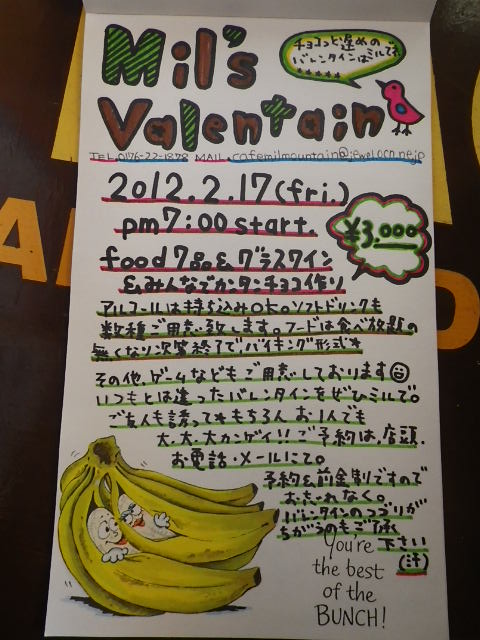 Mil's
Valentain
チョコっと遅めの
バレンタインはミルで
TEL.0176-22-1878 MAIL.cafemilmountain@jewel.ocn.ne.jp
2012.2.17(fri.)
pm7:00 start.
¥3,000
food7品&グラスワイン
&みんなでカンタンチョコ作り
アルコールは持ち込みOK。ソフトドリンクも
数種ご用意致します。フードは食べ放題の
無くなり次第終了で、バイキング形式*
その他、ゲームなどもご用意しております☺
いつもとは違ったバレンタインをぜひミルで。
ご友人も誘って*もちろんお1人でも
大、大、大カンゲイ!!ご予約は、店頭、
お電話・メールにて。
予約&前金制ですので
お忘れなく。
バレンタインのつづりが
ちがうのもご了承
下さい
(汗)
You're
the best
of the
BUNCH!